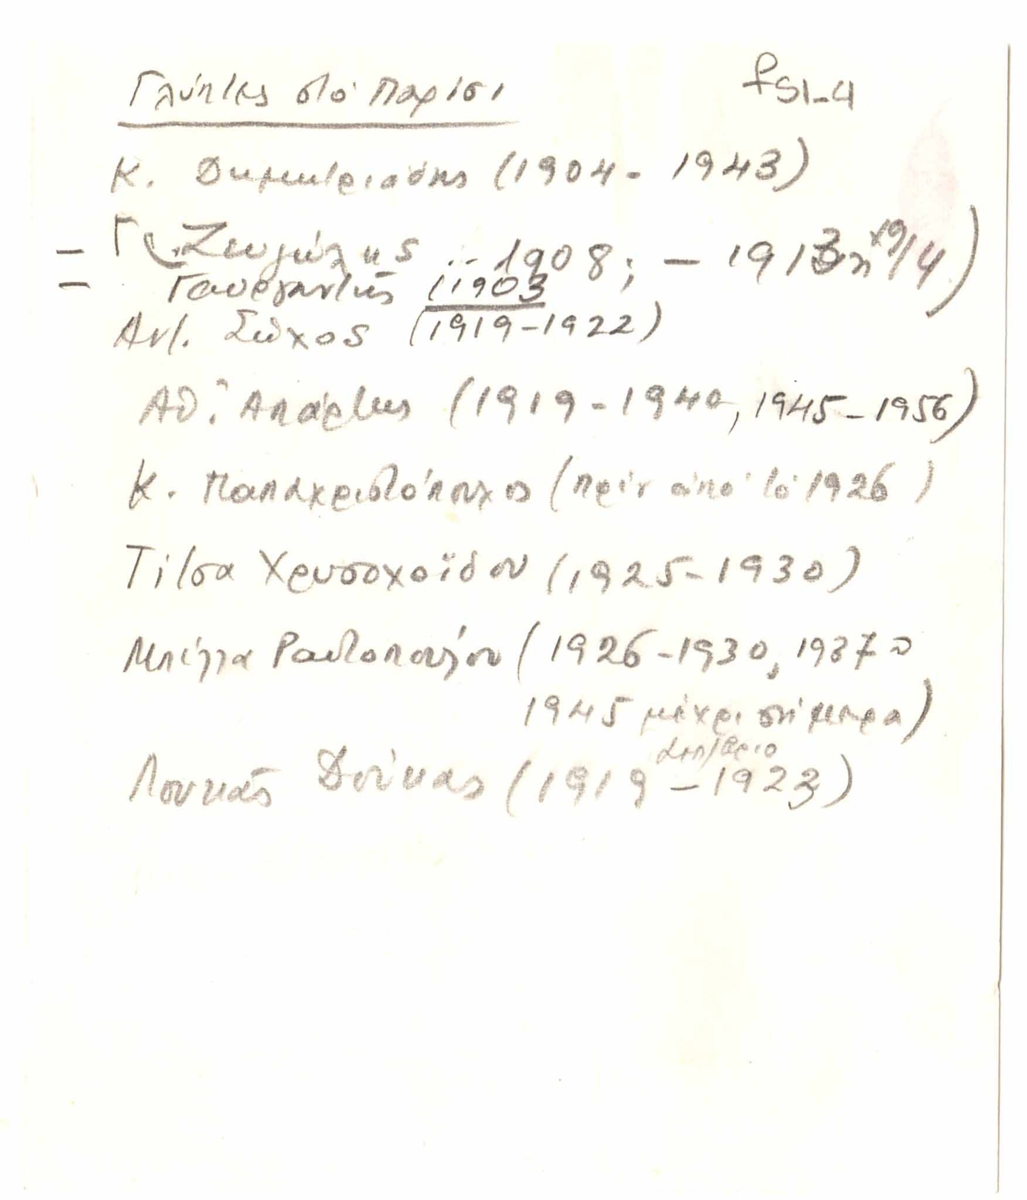 Γλύπτες στό Παρίσι
fS1-4
Κ. Δημητριάδης (1904 - 1943)
- Γ. Ζευγώλης .. 1908; - 1913 ή 19/4)
- Γεωργαντής (1903
Αντ. Σώχος (1919-1922)
Αθ. Απάρτης (1919 - 1940, 1945-1956)
Κ. Παπαχριστόπουλος (πρίν από τό 1926)
Τίτσα Χρυσοχοΐδου (1925-1930)
Μπέλλα Ραυτοπούλου (1926-1930, 1937
1945 μέχρι σήμερα)
Λουκάς Δούκας (1919 - 1923)